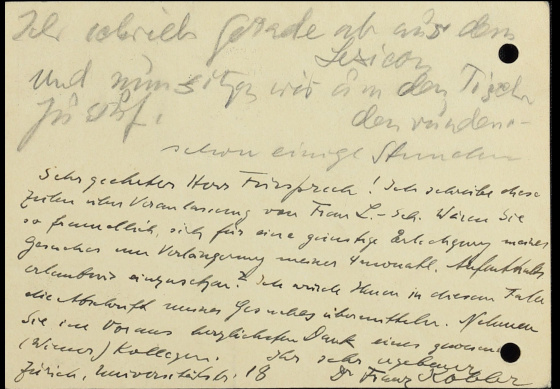 Ich schrieb gerade ab aus dem
Lexicon
und nun sitzen wir um den Tisch
zu fünf. den runden -
schon einige Stunden
Sehr geehrter Herr Fürsprech! Ich schreibe diese
Zeilen über Veranlassung von Frau L.-Sch. Wären Sie
so freundlich, sich für eine günstige Erledigung meines
Gesuches um Verlängerung meiner 4 monatl. Aufenthalts
erlaubnis einzusetzen? Ich würde Ihnen in diesem Falle
die Abschrift meines Gesuches übermitteln. Nehmen
Sie im Voraus herzlichsten Dank eines gewesenen
(Wiener) Kollegen. Ihr sehr ergebener
Zürich, Universitätsstr. 18 Dr Franz Kobler